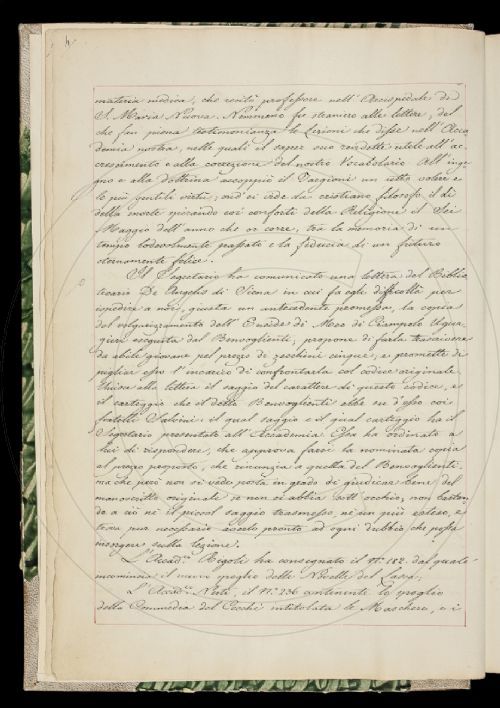 materia medica, che resultò professore nell'Arcispedale di
S. Maria Nuova. Nemmeno fu straniero alle lettere, del
che fan piena testimonianza le Lezioni che disse nell'Acca
demia nostra, nelle quali il saper suo rendette utile all'ac-
crescimento e alla correzione del nostro Vocabolario. All'inge-
gno e alla dottrina accoppiò il Targioni un retto volere e
le più gentili virtù; ond'ei rese da cristiano filosofo, il dì
della morte spirando coi conforti della Religione il Sei
Maggio dell'anno che or corre, tra la memoria di un
tempo lodevolmente passato e la fiducia di un futuro
eternamente felice.
Il Segretario ha comunicato una lettera del Biblio
tecario De Angelis di Siena in cui fa egli difficoltà per
ispedire a noi, giusta un antecedente promessa, la copia
del volgarizzamento dell'Eneide di Meo di Ciampolo Ugur
gieri eseguita dal Benvoglienti; propone di farla trascrivere
da abile giovane pel prezzo di zecchini cinque, e promette di
pigliar esso l'incarico di confrontarla col codice originale.
Unisce alla lettera il saggio del carattere di questo codice, e
il carteggio che il detto Benvoglienti ebbe su d'esso coi
fratelli Salvini: il qual saggio e il qual carteggio ha il
Segretario presentato all'Accademia. Essa ha ordinato a
lui di rispondere, che approva farsi la nominata copia
al prezzo proposto, che rinunzia a quella del Benvoglienti
ma che però non si vede posta in grado di giudicar bene del
manoscritto originale se non si abbia sott'occhio, non bastan-
do a ciò nè il piccol saggio trasmesso, nè un più esteso, e
trova pur necessario averlo pronto ad ogni dubbio che possa
insorgere sulla lezione.
L'Accad.co Rigoli ha consegnato il N.o 182. dal quale
incomincia il nuovo spoglio delle Novelle del Lasca;
L'Accad.co Nesti, il N.o 236 attinente lo spoglio
della Commedia del Cecchi intitolata le Maschere, e i